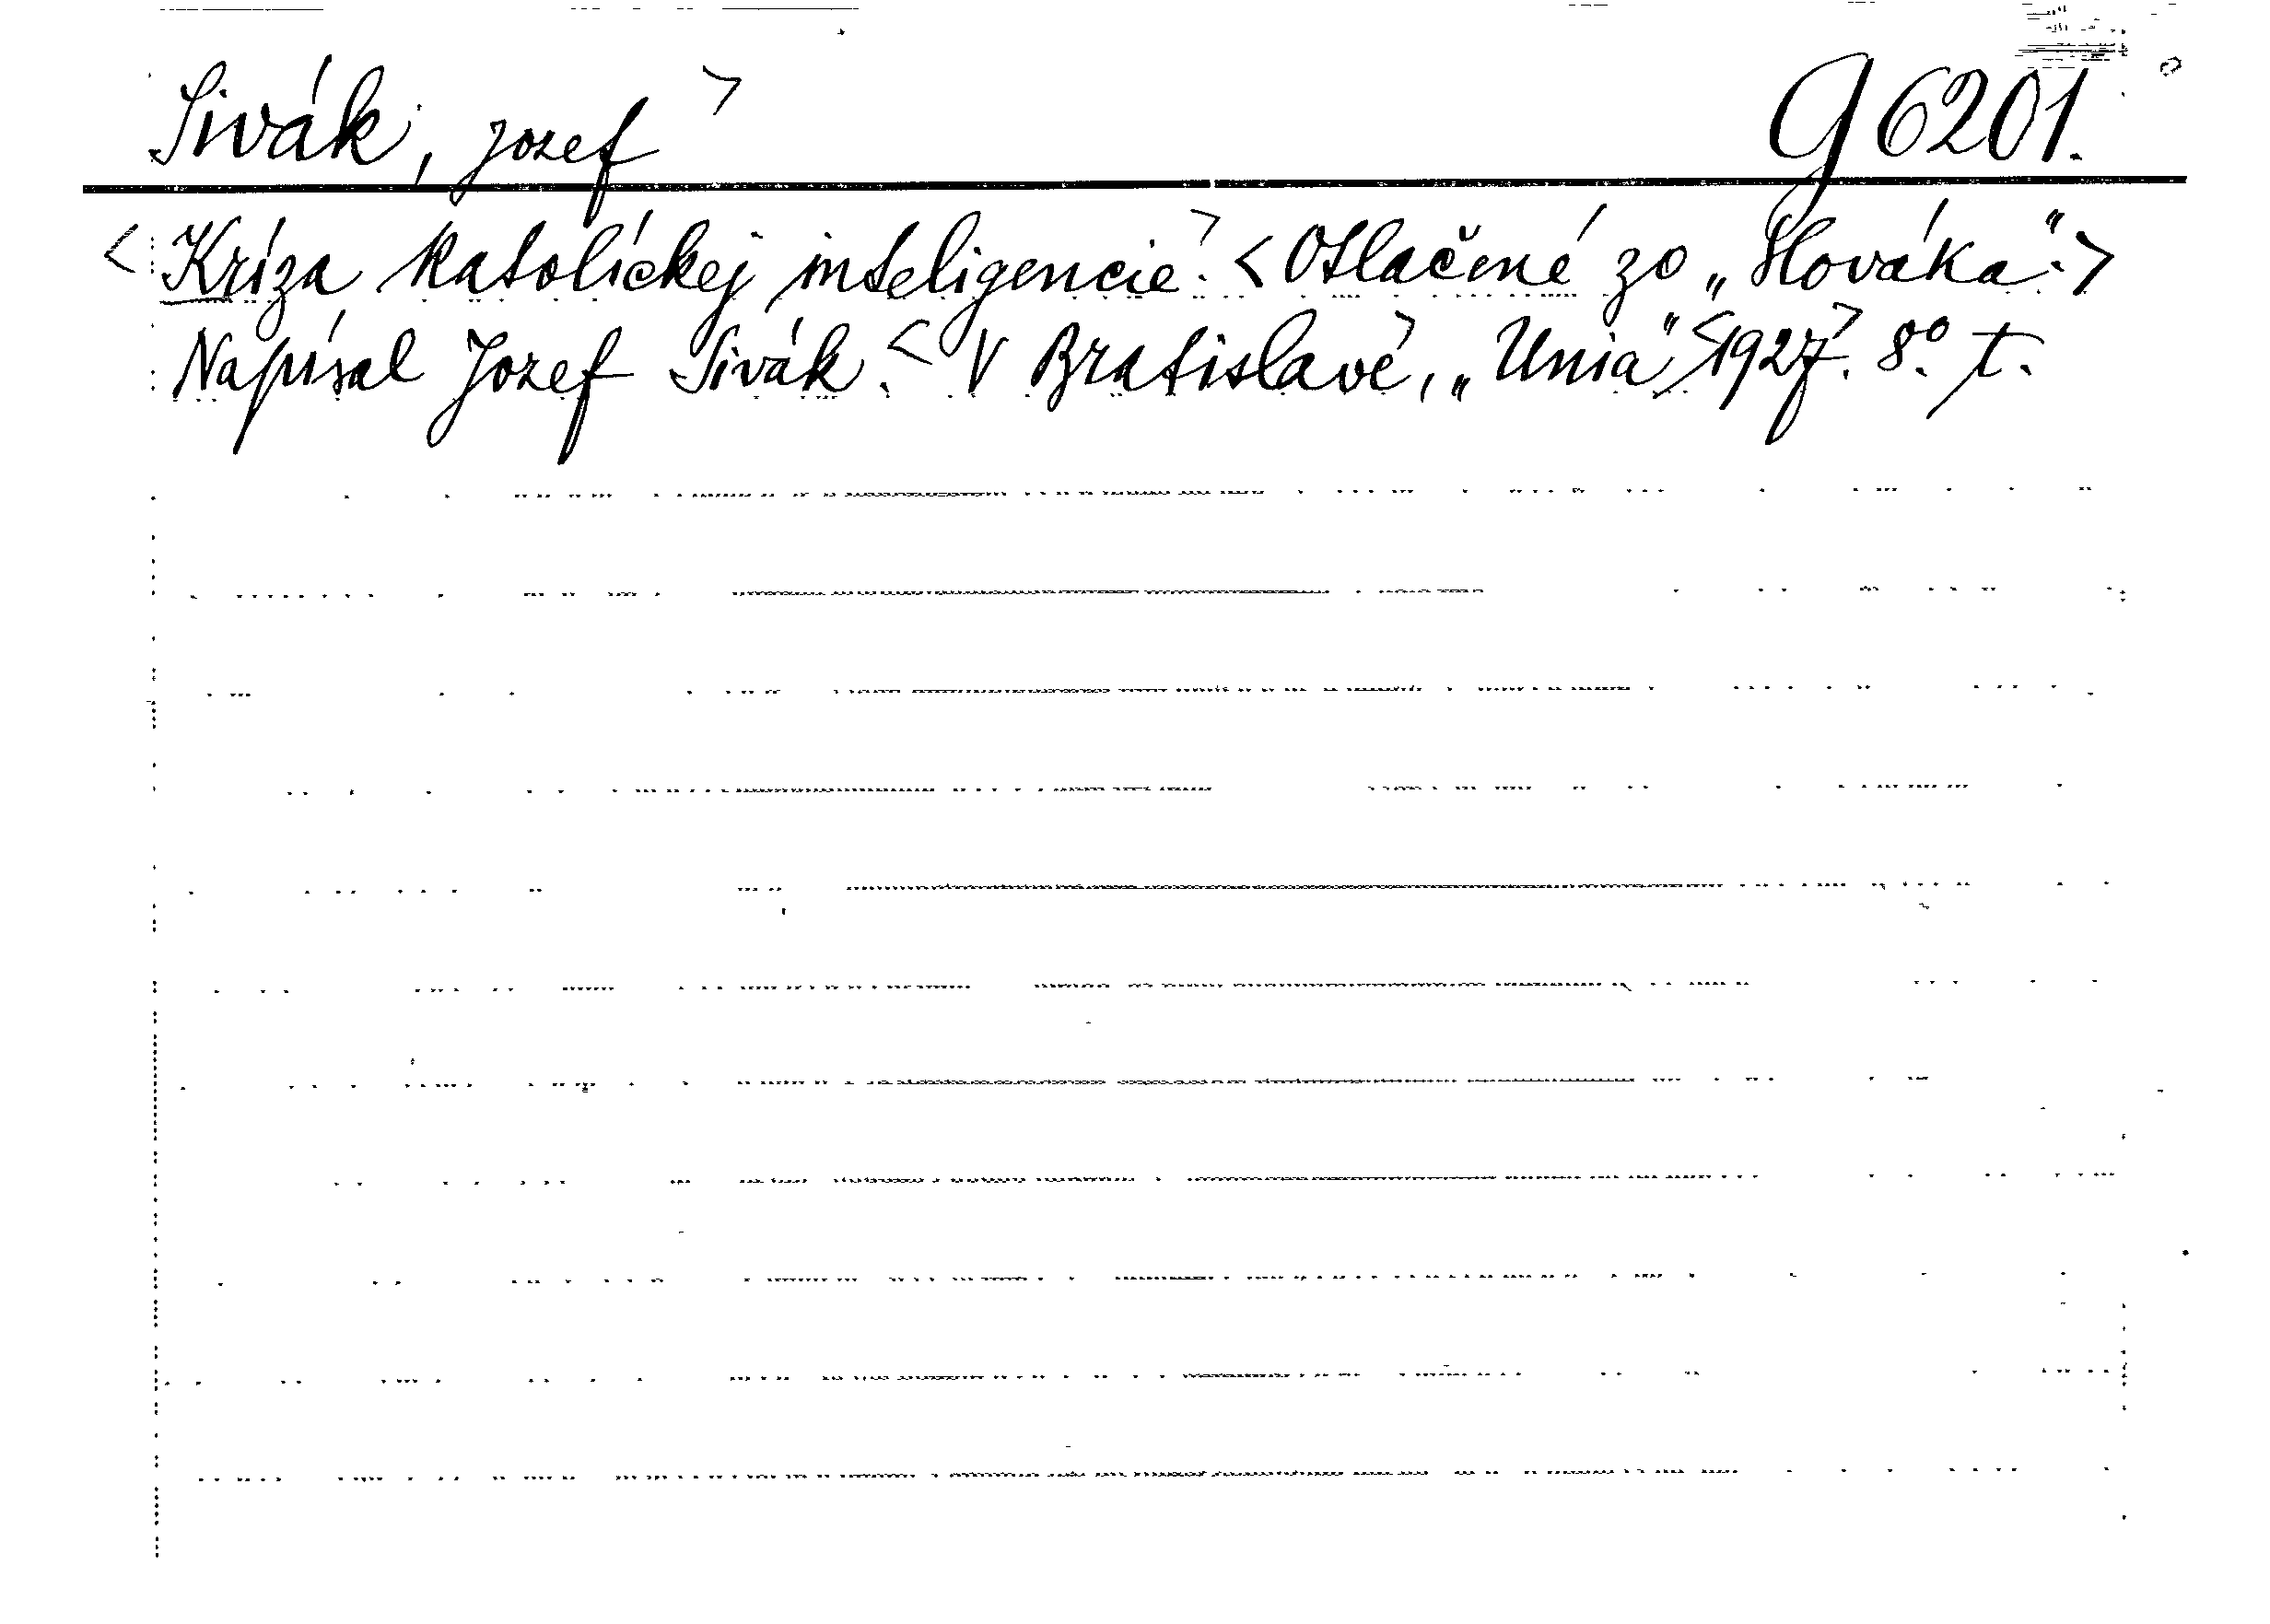 Sivák, Jozef > G 6201.
< Kríza katolíckej inteligencie.> < Otlačené zo „Slováka“. >
Napísal Jozef Sivák. < V Bratislave>, „Unia“ <1927>. 8° t.